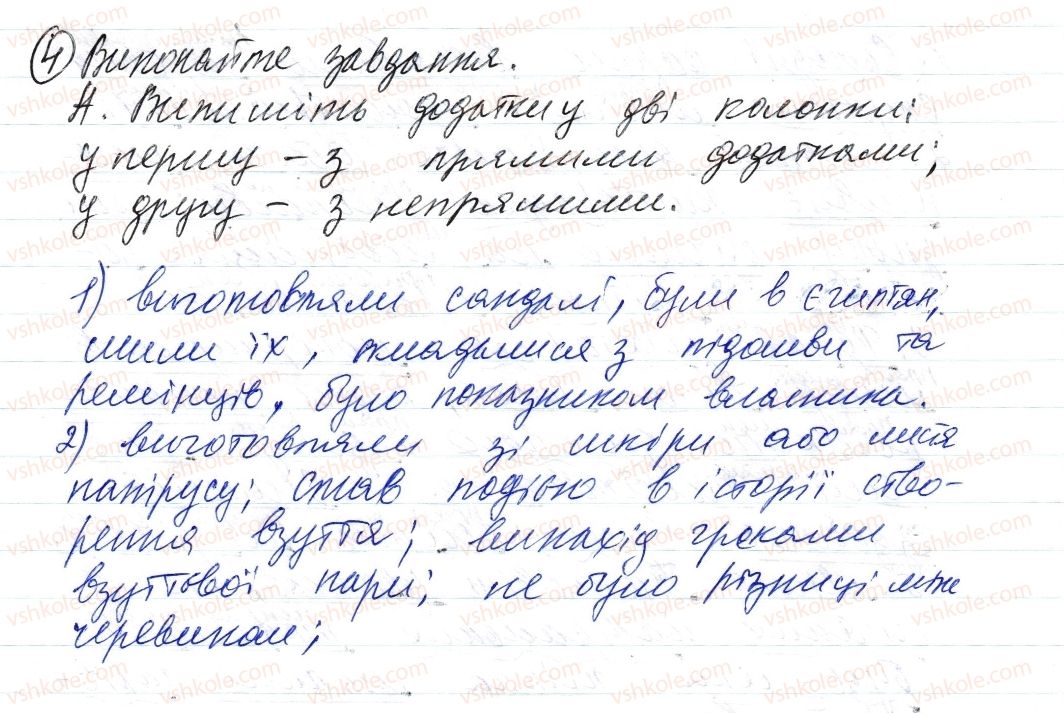 4 Виконайте завдання.
А. Випишіть додатки у дві колонки:
у першу – з прямими додатками;
у другу – з непрямими.
1) виготовляли сандалі, були в єгиптян,
шили їх, складалися з підошви та
ремінців, було показником власника.
2) виготовляли зі шкіри або листя
папірусу; став подією в історії ство-
рення взуття; винахід греками
взуттєвої пари; не було різниці між
черевиком;
vshkole.com